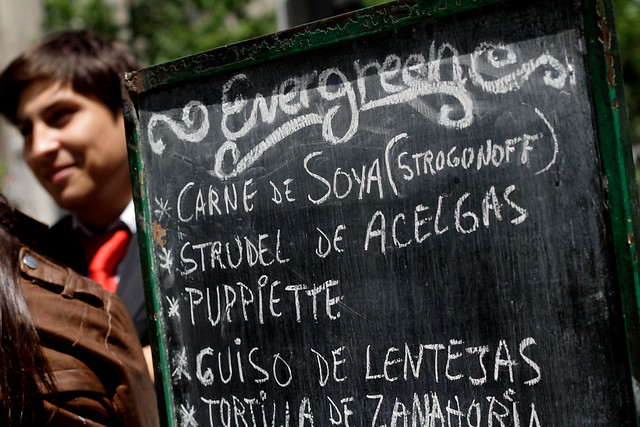 Evergreen
* CARNE DE SOYA (STROGONOFF)
* STRUDEL DE ACELGAS
* PUPPIETTE
* GUISO DE LENTEJAS
* TORTILLA DE ZANAHORIA